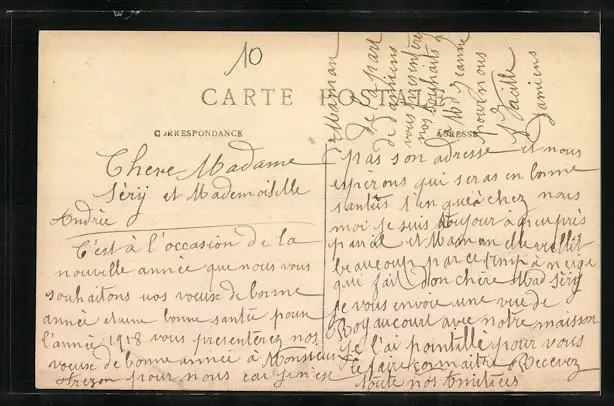 10
CARTE POSTALE
CORRESPONDANCE
ADRESSE
Chere Madame
Séry et Mademoiselle
Andrée
C'est à l'occasion de la
nouvelle année que nous vous
souhaitons nos voeux de bonne
année et une bonne santé pour
l'année 1918 vous presenterez nos
voeux de bonne année à Monsieur
pour nous car je n'ai
pas son adresse et nous
espérons qui seras en bonne
santés chez nous
moi je suis toujour à peu près
pareil et Maman elle viellit
beaucoup par ce temp à neige
qui fait Don chère Mad Séry
je vous envoie une vue de
Boyaucourt avec notre maison
je l'ai pointallé pour vous
le faire connaitre Recevez
toute nos Amitiés
et Maman
de la part
de damiens
vous presenterez
nos souhaits à
Md Jeanne
pour nous
damiens